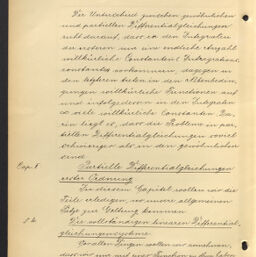 Der Unterschied zwischen gewöhnlichen
und partiellen Differentialgleichungen
ruht darauf, dass in den Integralen
der ersteren nur eine endliche Anzahl
willkürliche Constanten (Integrations-
constanten) vorkommen, dagegen in
den letzteren treten in den
willkürliche Functionen auf
und infolgedessen in den Integralen
∞ viele willkürliche Constanten. Da-
rin liegt es, dass die Probleme in par-
tiellen Differentialgleichungen soviel
schwieriger als in den gewöhnlichen
sind.
Cap. I Partielle Differentialgleichungen
erster Ordnung
In diesem Capitel wollen wir die
Teile erledigen, wo unsere allgemeinen
Sätze zur Geltung kommen
Die vollständigen linearen Differential-
gleichungssysteme
Vor allen Dingen wollen wir annehmen,
dass wir